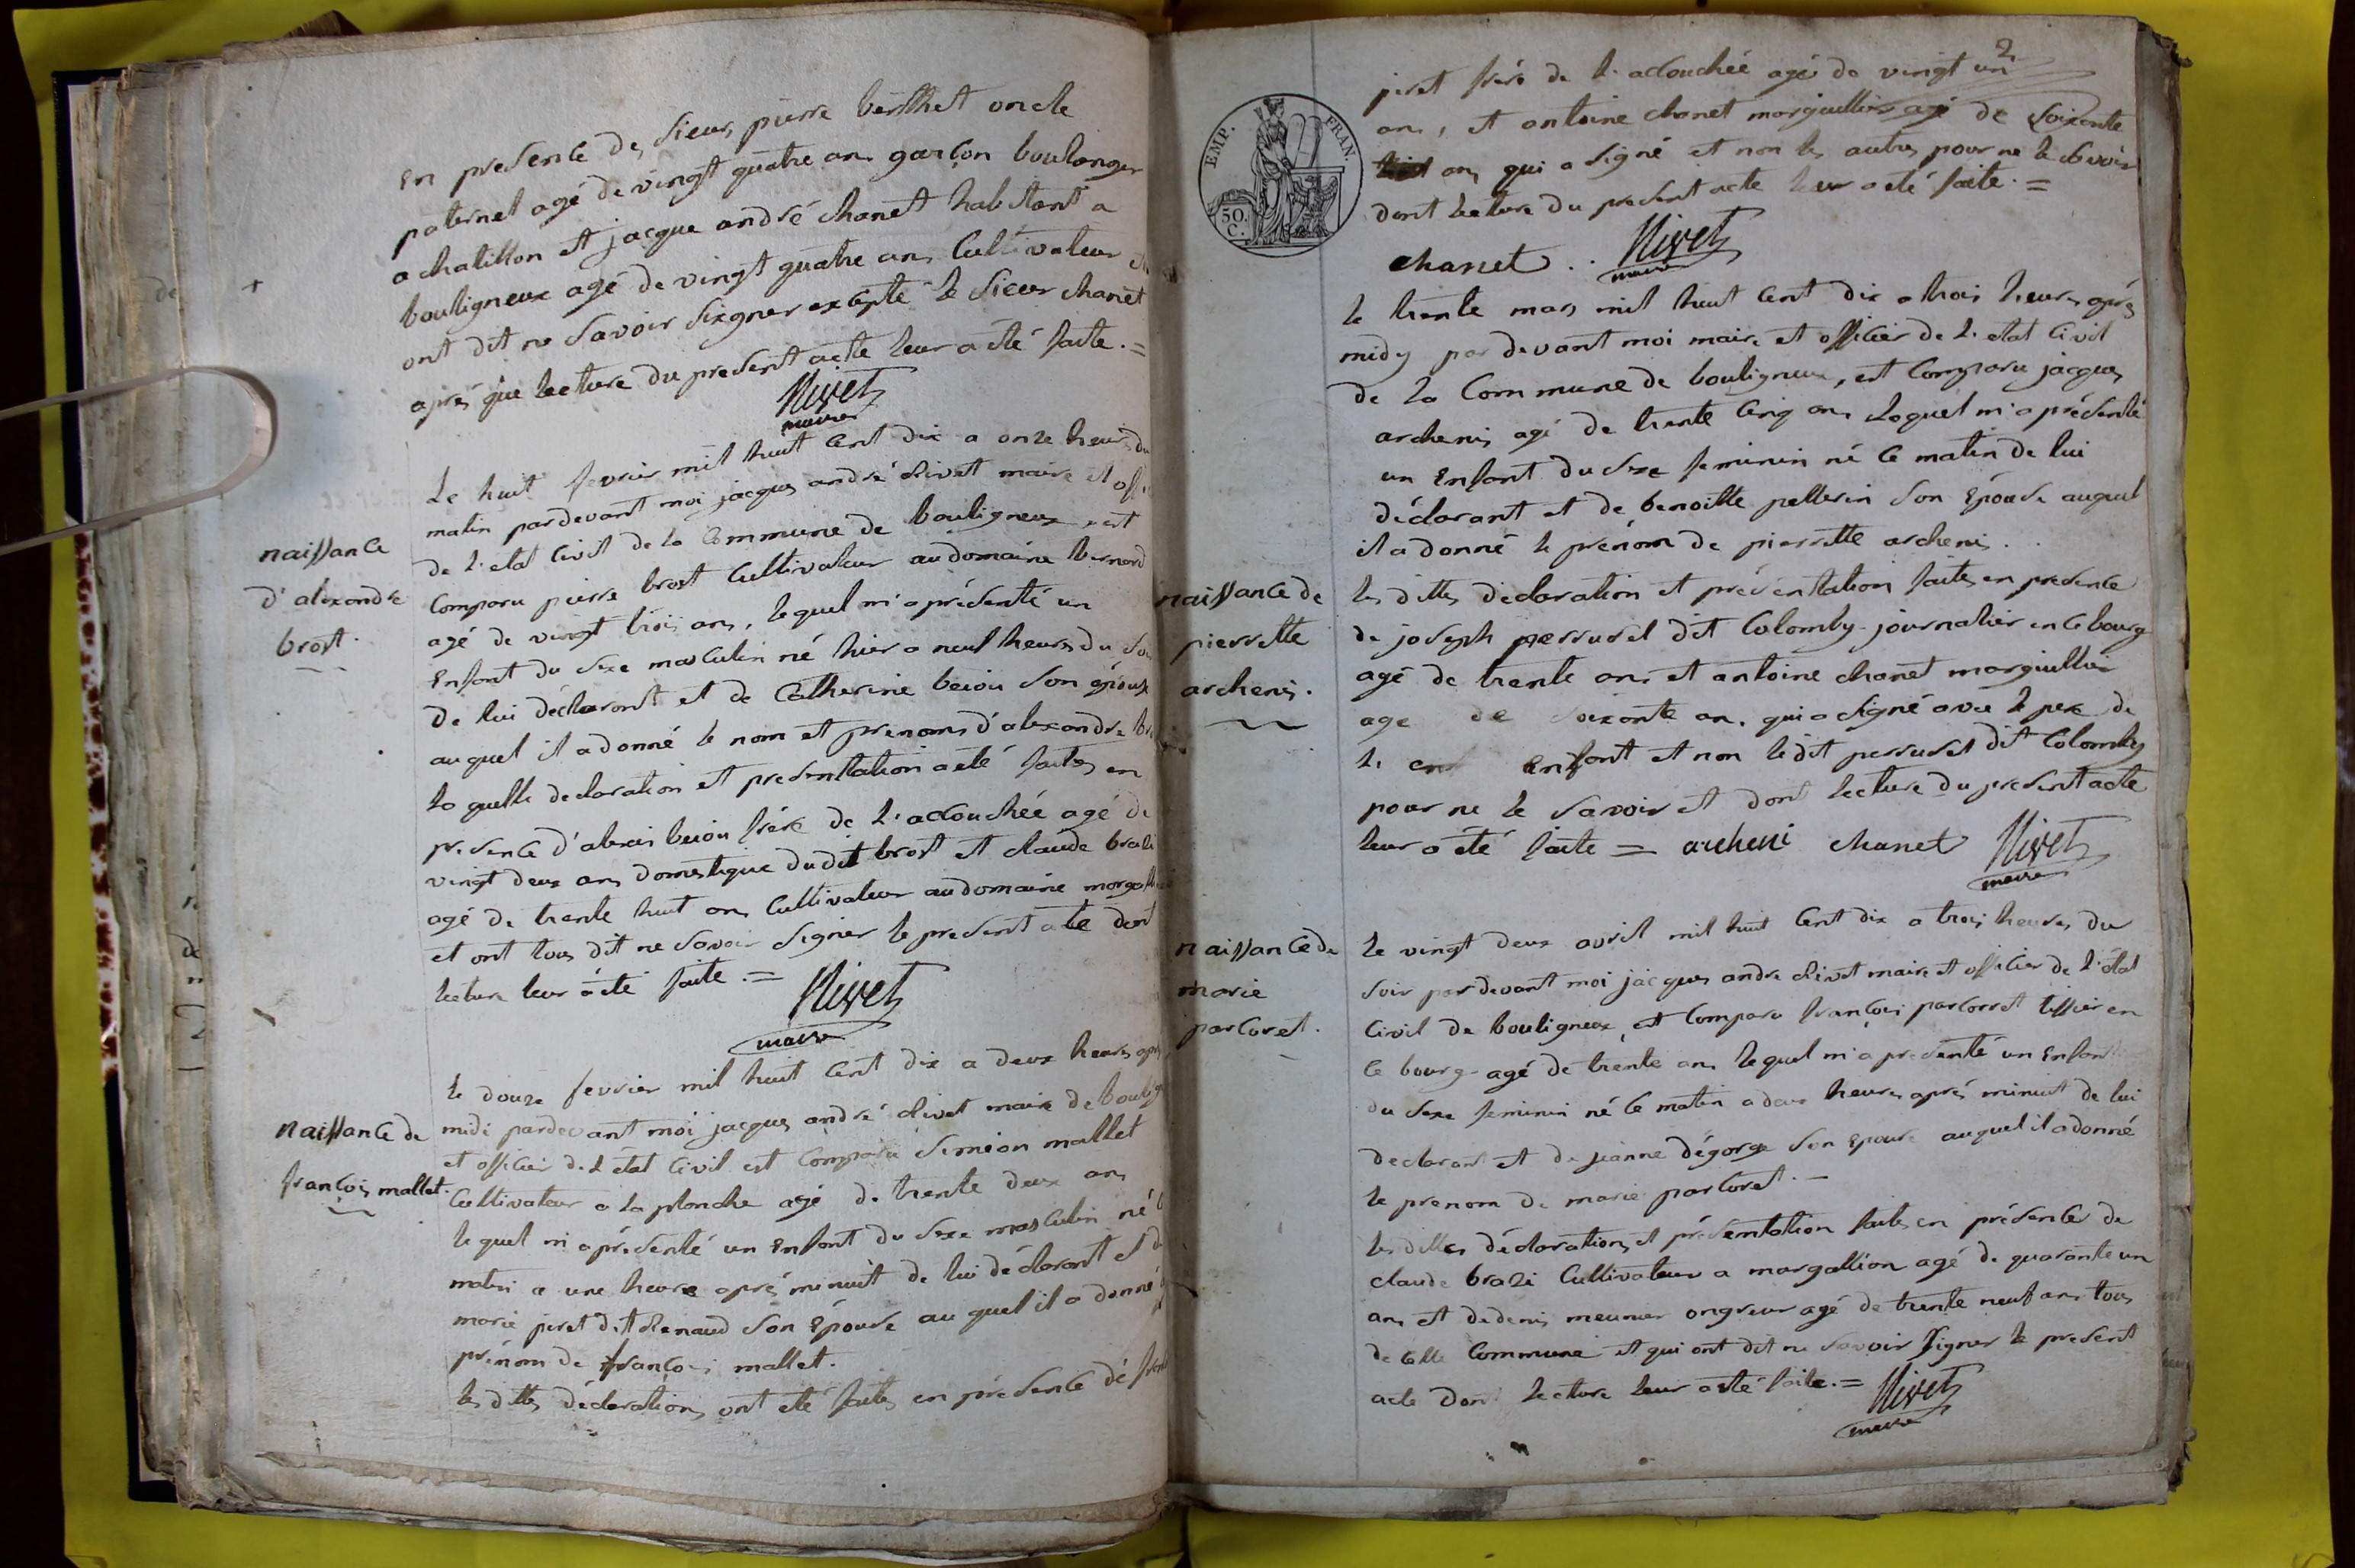 En presence des sieurs pierre berthet oncle
paternel agé de vingt quatre ans garçon boulanger
a chatillon et jacque andré chanet habitant a
bouligneux agé de vingt quatre ans Cultivateur
ont dit ne savoir sixgner excepté le sieur chanet
après que lecture du present acte leur a été faite. =
Rivet
maire
naissance
d'alexandre
brost.
Le huit fevrier mil huit Cent dix a onze heures du
matin pardevant moi jacques andré Rivet maire et
de l'etat Civil de la Commune de bouligneux est
Comparu pierre brost Cultivateur au domaine bernard
agé de vingt trois ans, lequel m'a présenté un
Enfant du sexe masculin né hier a neuf heures du
de lui déclarant et de Catherine beiou son épouse
auquel il a donné le nom et prenoms d'alexandre
la quelle declaration et presentation a été faites en
presence d'alexis beiou frère de l'acouchée agé de
vingt deux ans domestique dudit brost et claude
agé de trente huit ans Cultivateur au domaine
et ont tous dit ne savoir signer le present acte dont
lecture leur a été faite. =
Rivet
maire
naissance de
françois mallet.
le douze fevrier mil huit Cent dix a deux heures
midi pardevant moi jacques andré Rivet maire de
et officier de l'etat Civil est Comparu simeon mallet
Cultivateur a la planche agé de trente deux ans
lequel m'a présenté un Enfant du sexe masculin né
matin a une heure après minuit de lui déclarant et
marie piret dit Renaud son Épouse au quel il a donné
prénom de françois mallet.
les dittes déclarations ont été faites en présence de
2
piret frère de l'acouchée agé de vingt un
ans, et antoine chanet margiullier agé de soixante
ans qui a signé et non les autres pour ne le savoir
dont lecture du present acte leur a été faite. =
EMP. FRAN.
50. C.
chanet .. Rivet
maire
le trente mars mil huit Cent dix a trois heures après
midy par devant moi maire et officier de l'etat Civil
de la Commune de bouligneux, est Comparu jacques
archeni agé de trente Cinq ans lequel m'a présenté
un Enfant du sexe feminin né ce matin de lui
déclarant et de benoitte pellerin son Épouse auquel
il a donné le prénom de pierrette archeni.
naissance de
pierrette
archeni.
les dittes declaration et présentation faites en presence
de joseph perrusel dit Colomby journalier en ce bourg
agé de trente ans et antoine chanet margiullier
age de soixante ans qui a signé avec le pere de
l' enfant et non ledit perrusel dit Colomby
pour ne le savoir et dont lecture du present acte
leur a été faite = archeni chanet Rivet
maire
naissance de
marie
parcoret.
le vingt deux avril mil huit Cent dix a trois heures du
soir par devant moi jacques andre Rivet maire et officier de l'état
Civil de bouligneux, est Comparu françois parcorret tissier en
ce bourg agé de trente ans lequel m'a présenté un Enfant
du sexe feminin né ce matin a deux heures après minuit de lui
declarant et de jeanne dégorge son Epouse auquel il a donné
le prenom de marie parcoret. -
les dittes déclarations et présentation faites en présence de
claude brazi Cultivateur a margallion agé de quarante un
ans et de denis meunier ongreur agé de trente neuf ans tous
de cette Commune et qui ont dit ne savoir signer le present
acte dont lecture leur a été faite. = Rivet
maire